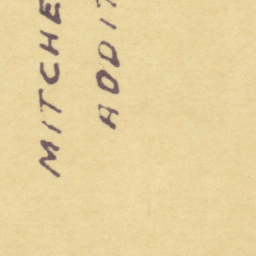 MITCHE
ADDI